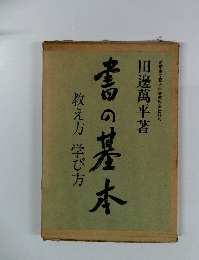 田邊萬平著
書の基本
教え方 学び方